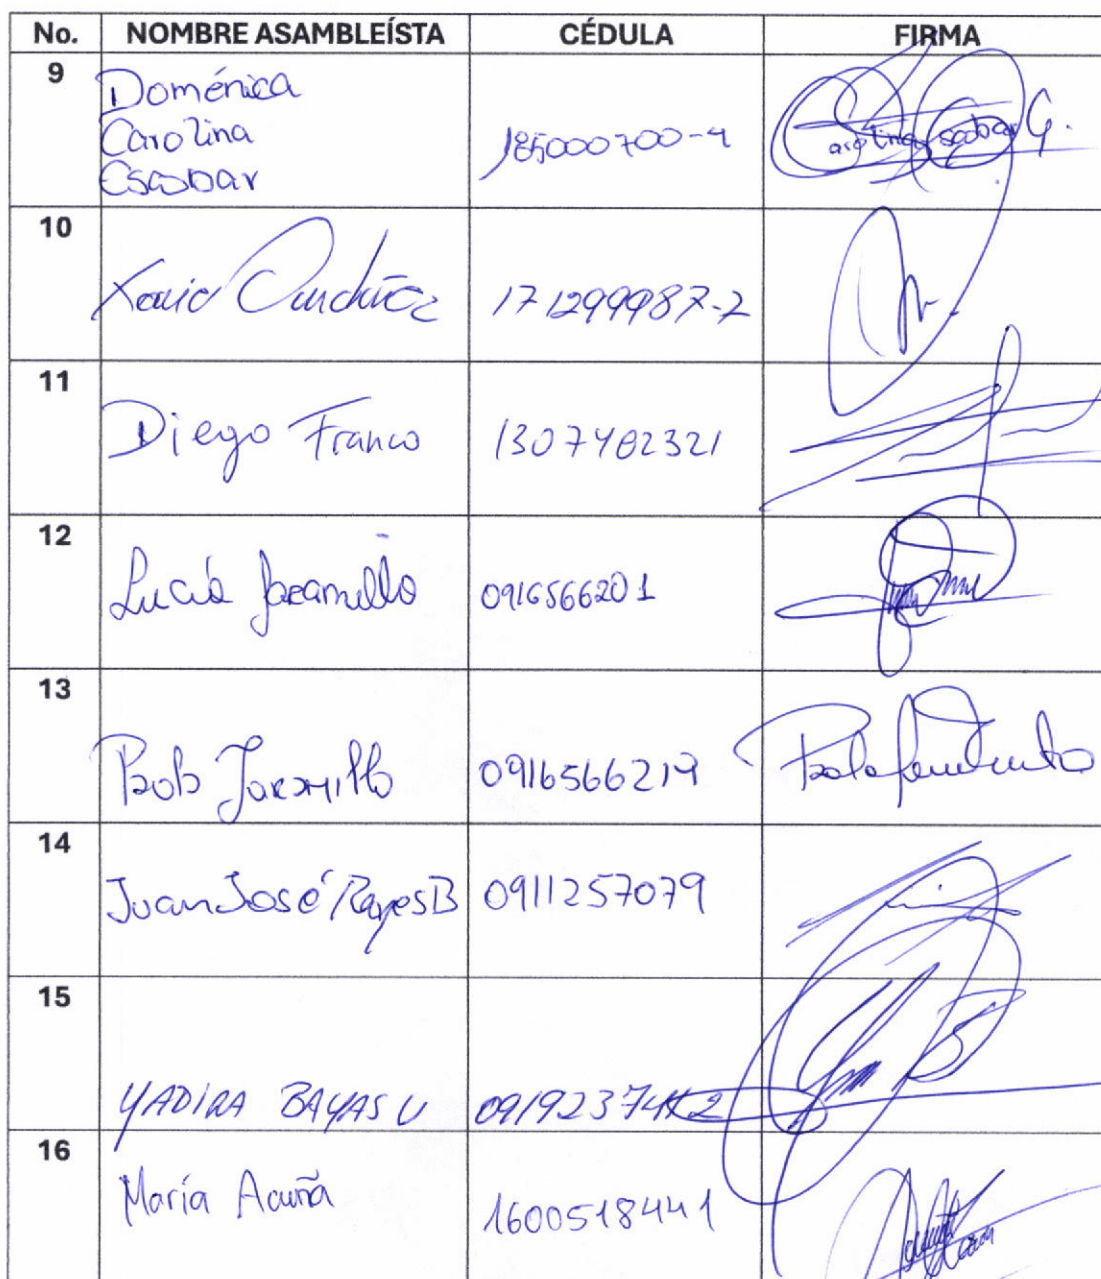 No. NOMBRE ASAMBLEÍSTA CÉDULA FIRMA
9
Doménica
Carolina
Escobar
185000700-4
Carolina Escobar G.
10
171299987-2
11
Diego Franco
1307402321
12
Lucía Jaramillo
0916566201
13
Paola Jaramillo
0916566219
14
Juan José Reyes B
0911257079
15
YADIRA BAYAS U
16
María Acuña
1600518441